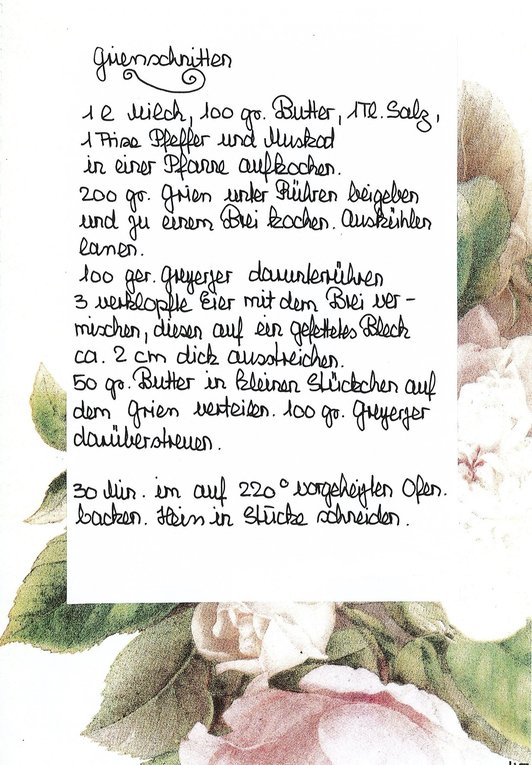 Grienschnitten
1 l Milch, 100 gr. Butter, 1 Tl. Salz,
1 Prise Pfeffer und Muskad
in einer Pfanne aufkochen.
200 gr. Grien unter Rühren beigeben
und zu einem Brei kochen. Auskühlen
lanen.
100 ger. Greyerzer darunterrühren
3 verklopfte Eier mit dem Brei ver-
mischen, diesen auf ein gefettetes Blech
ca. 2 cm dick ausstreichen.
50 gr. Butter in kleinen Stückchen auf
dem Grien verteilen. 100 gr. Greyerzer
darüberstreuen.
30 Min. im auf 220° vorgeheizten Ofen
backen. Heiss in Stücke schneiden.